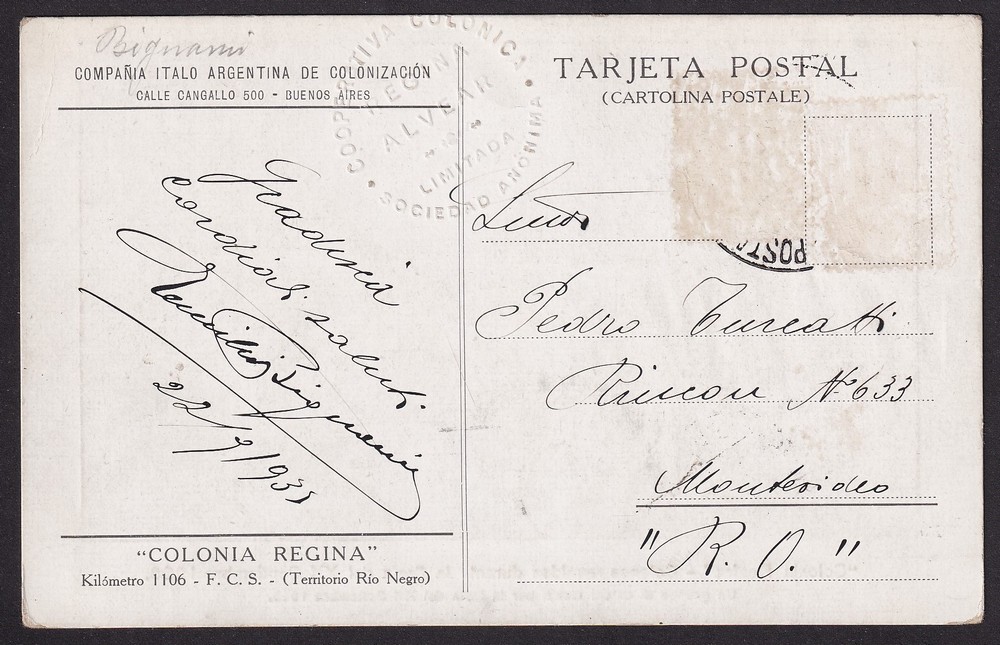 Bignami
COMPAÑIA ITALO ARGENTINA DE COLONIZACIÓN
CALLE CANGALLO 500 - BUENOS AIRES
COOPERATIVA COLONICA
REGINA
ALVEAR
LIMITADA
SOCIEDAD ANONIMA
TARJETA POSTAL
(CARTOLINA POSTALE)
cordiali saluti
Bignami
22/9/931
"COLONIA REGINA"
Kilómetro 1106 - F. C. S. - (Territorio Río Negro)
Pedro Turcatti
Rincon Nº 633
Montevideo
"R. O."